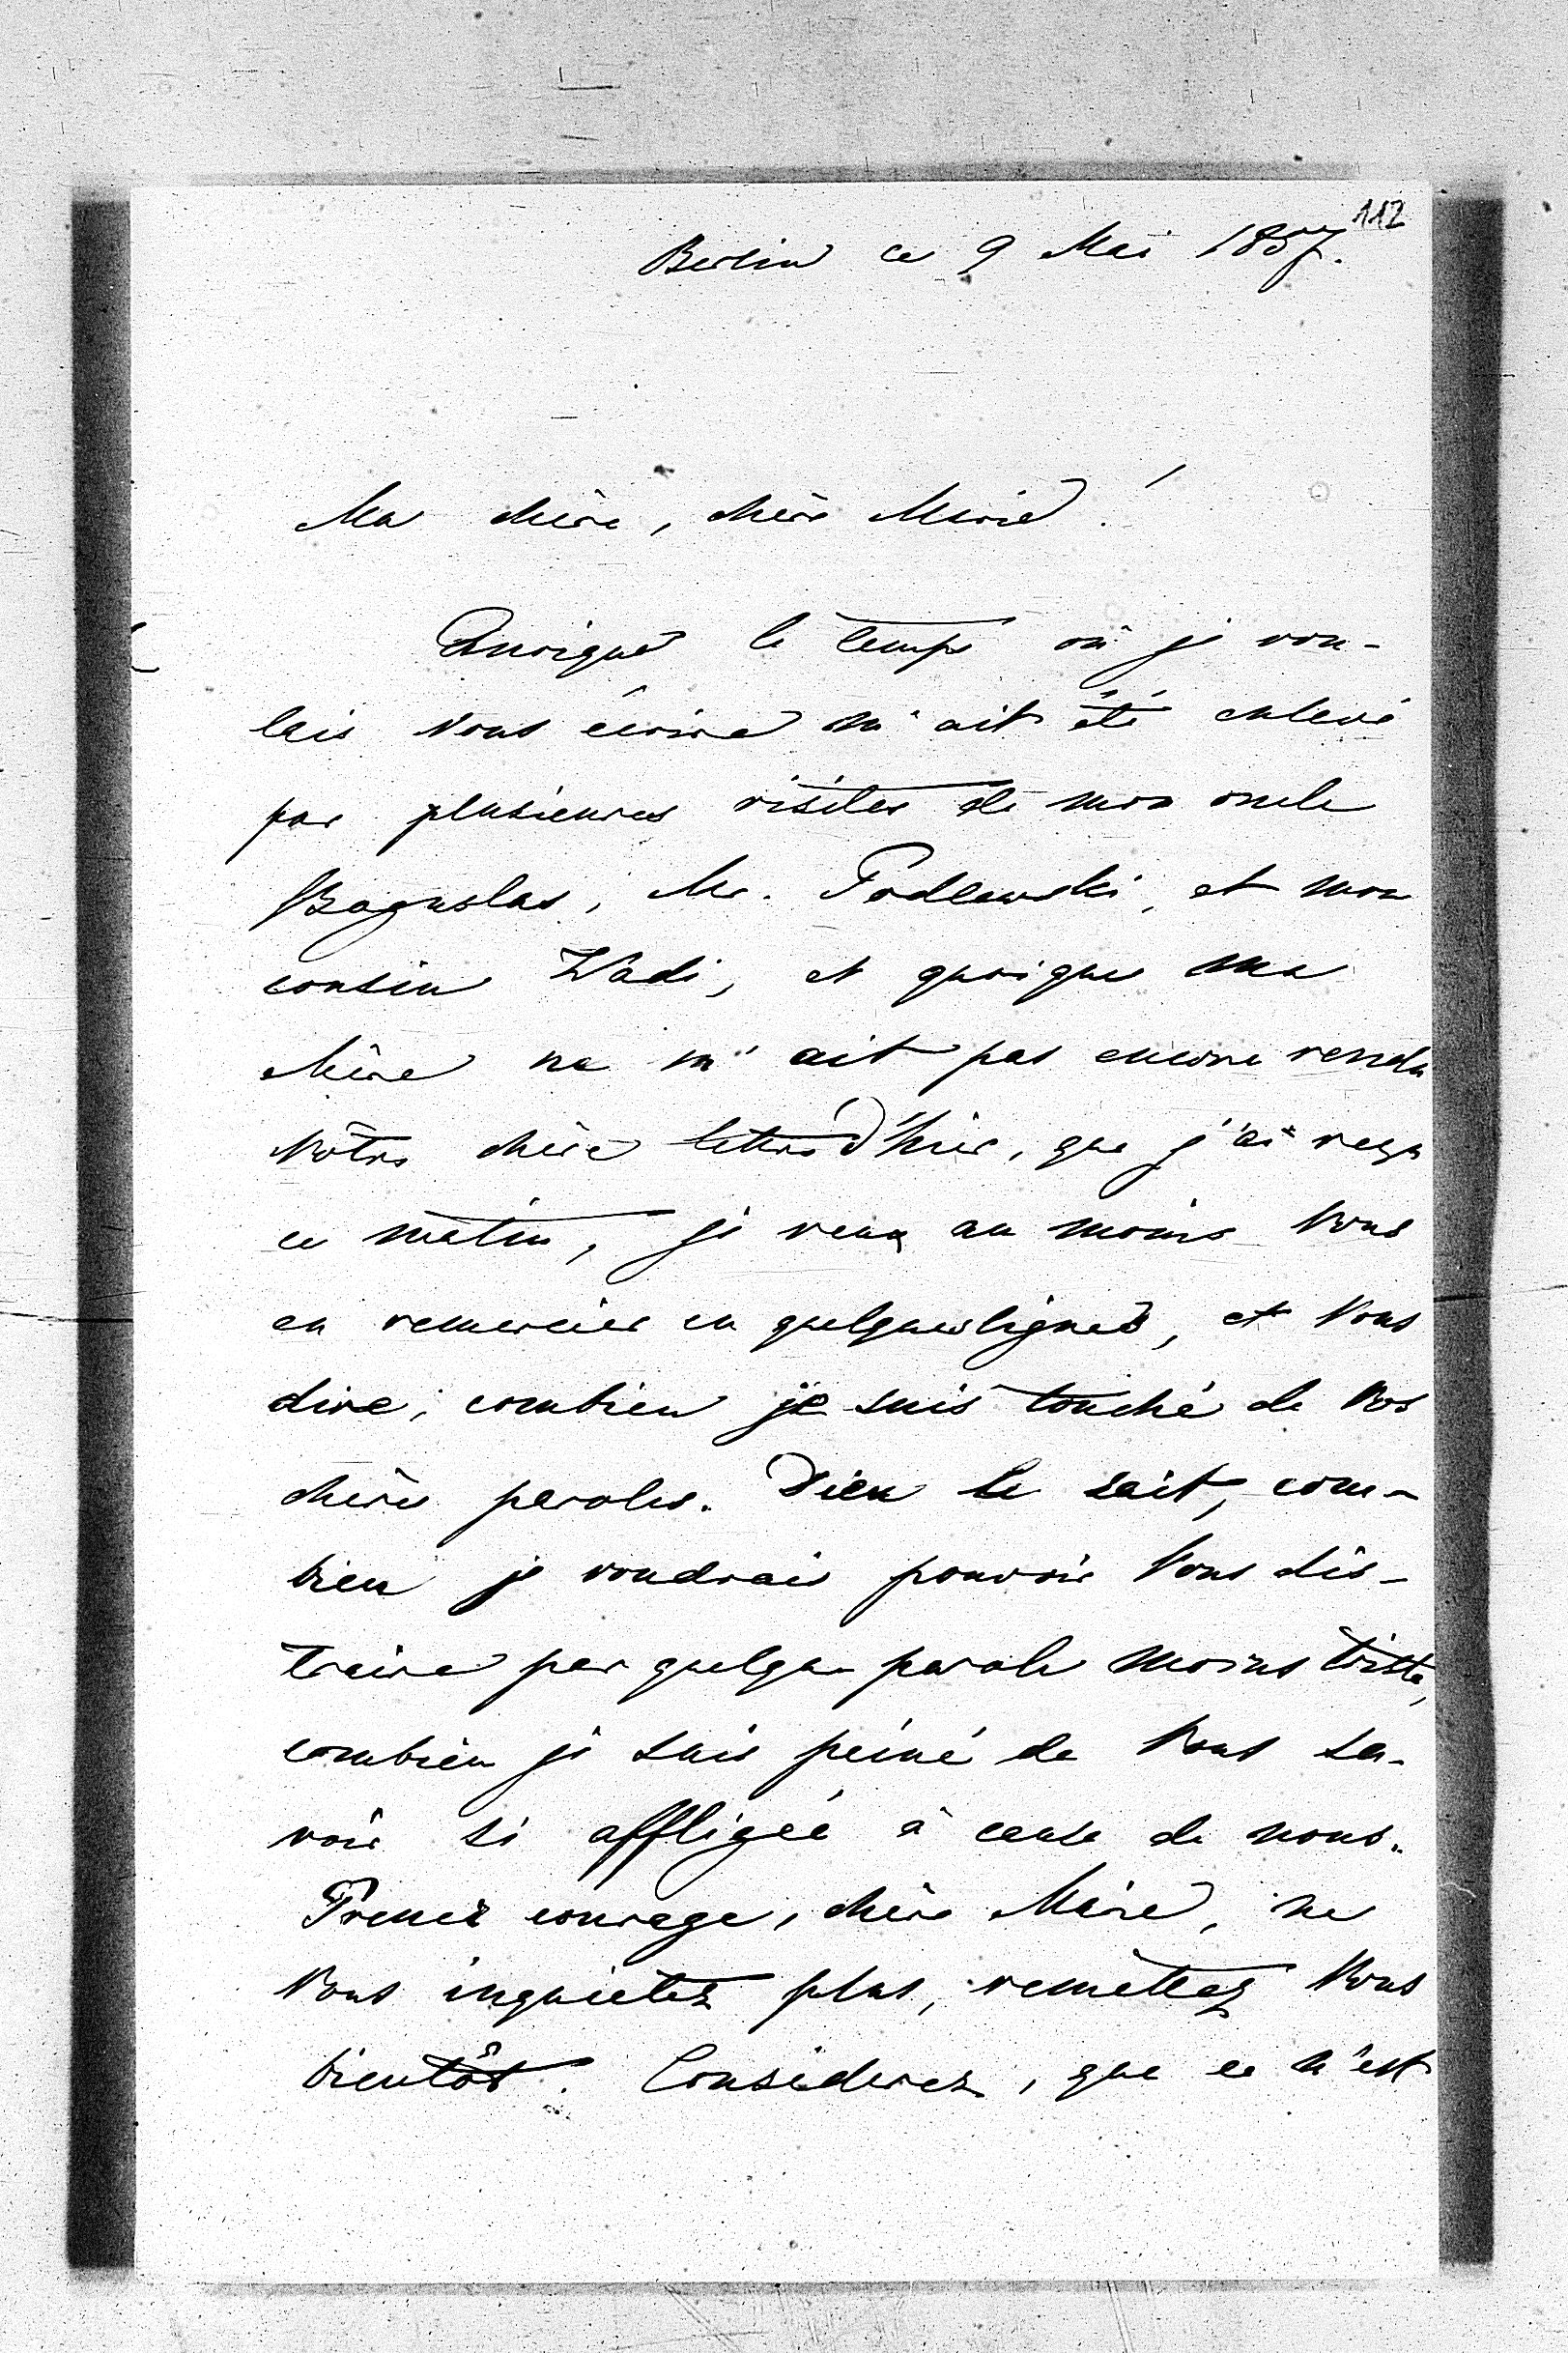 112
Berlin ce 9 Mai 1857.
Ma chère, chère Mère!
Quoique le temps où je vou-
lais Vous écrire m'ait été enlevé
par plusieures visites de mon oncle
Boguslas, Mr. Podlewski, et mon
cousin Wadi, et quoique ma
Mère ne m'ait pas encore rendu
Vôtre chère lettre d'hier, que j'ai reçu
ce matin, je veux au moins Vous
en remercier en quelques lignes, et Vous
dire, combien je suis touché de Vos
chères paroles. Dieu le sait, com-
bien je voudrais pouvoir Vous dis-
traire par quelque parole moins triste,
combien je suis peiné de Vous sa-
voir si affligée à cause de nous.
Prenez courage, chère Mère, ne
Vous inquiètez plus, remettez Vous
bientôt. Considerez, que ce n'est